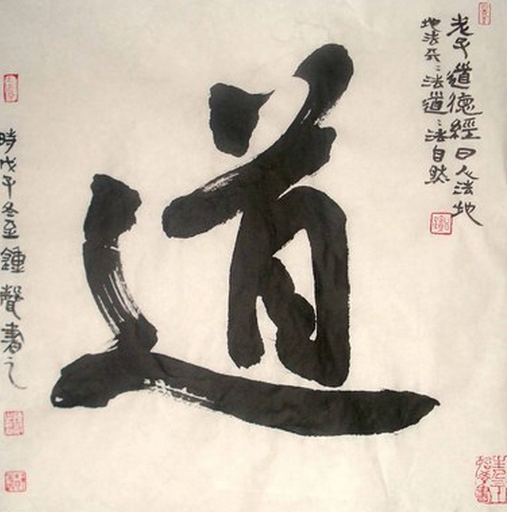 老子道德經曰人法地
地法天〻法道〻法自然
道
時戊子冬至鍾聲書之